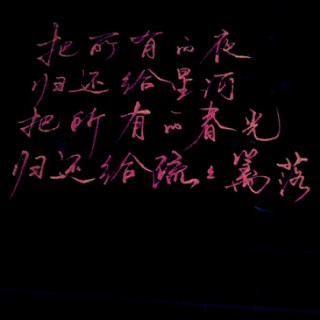 把所有的夜
归还给星河
把所有的春光
归还给疏々篱落